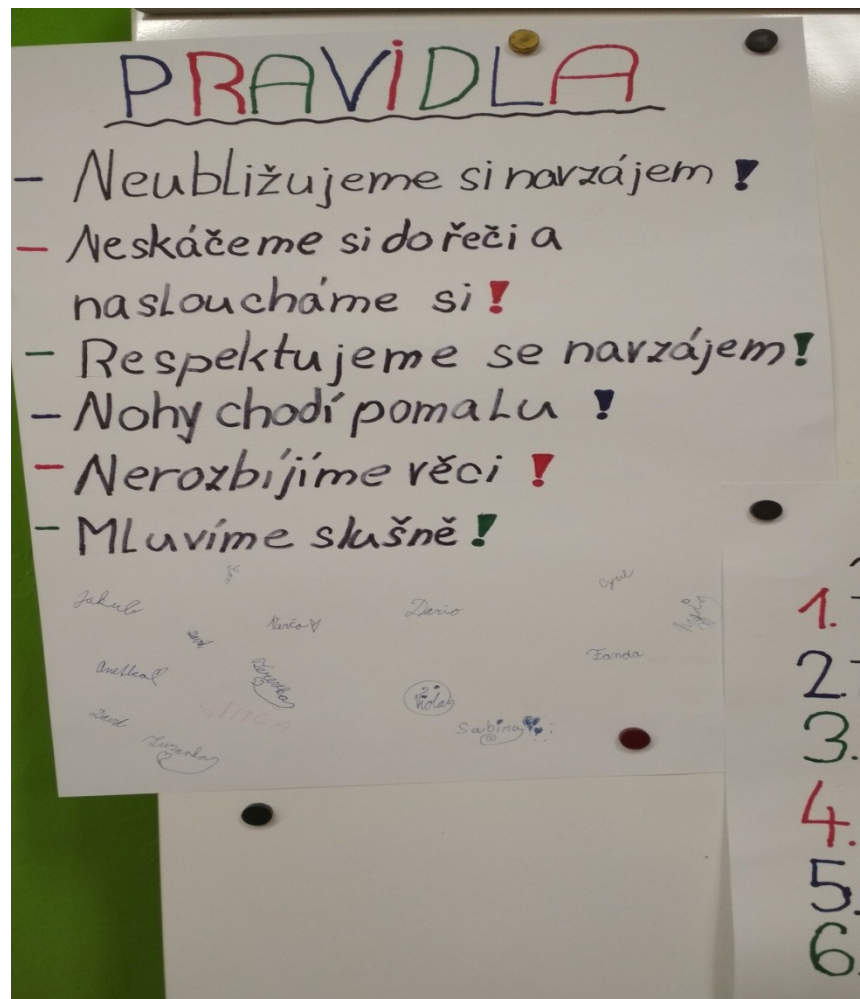 PRAVIDLA
- Neubližujeme si navzájem!
- Neskáčeme si do řeči a
nasloucháme si!
- Respektujeme se navzájem!
- Nohy chodí pomalu!
- Nerozbíjíme věci!
- Mluvíme slušně!
Jakub
Verča
Dario
Anetka
Terezka
Fanda
Viola
Sabina
Zuzanka
1.
2.
3.
4.
5.
6.